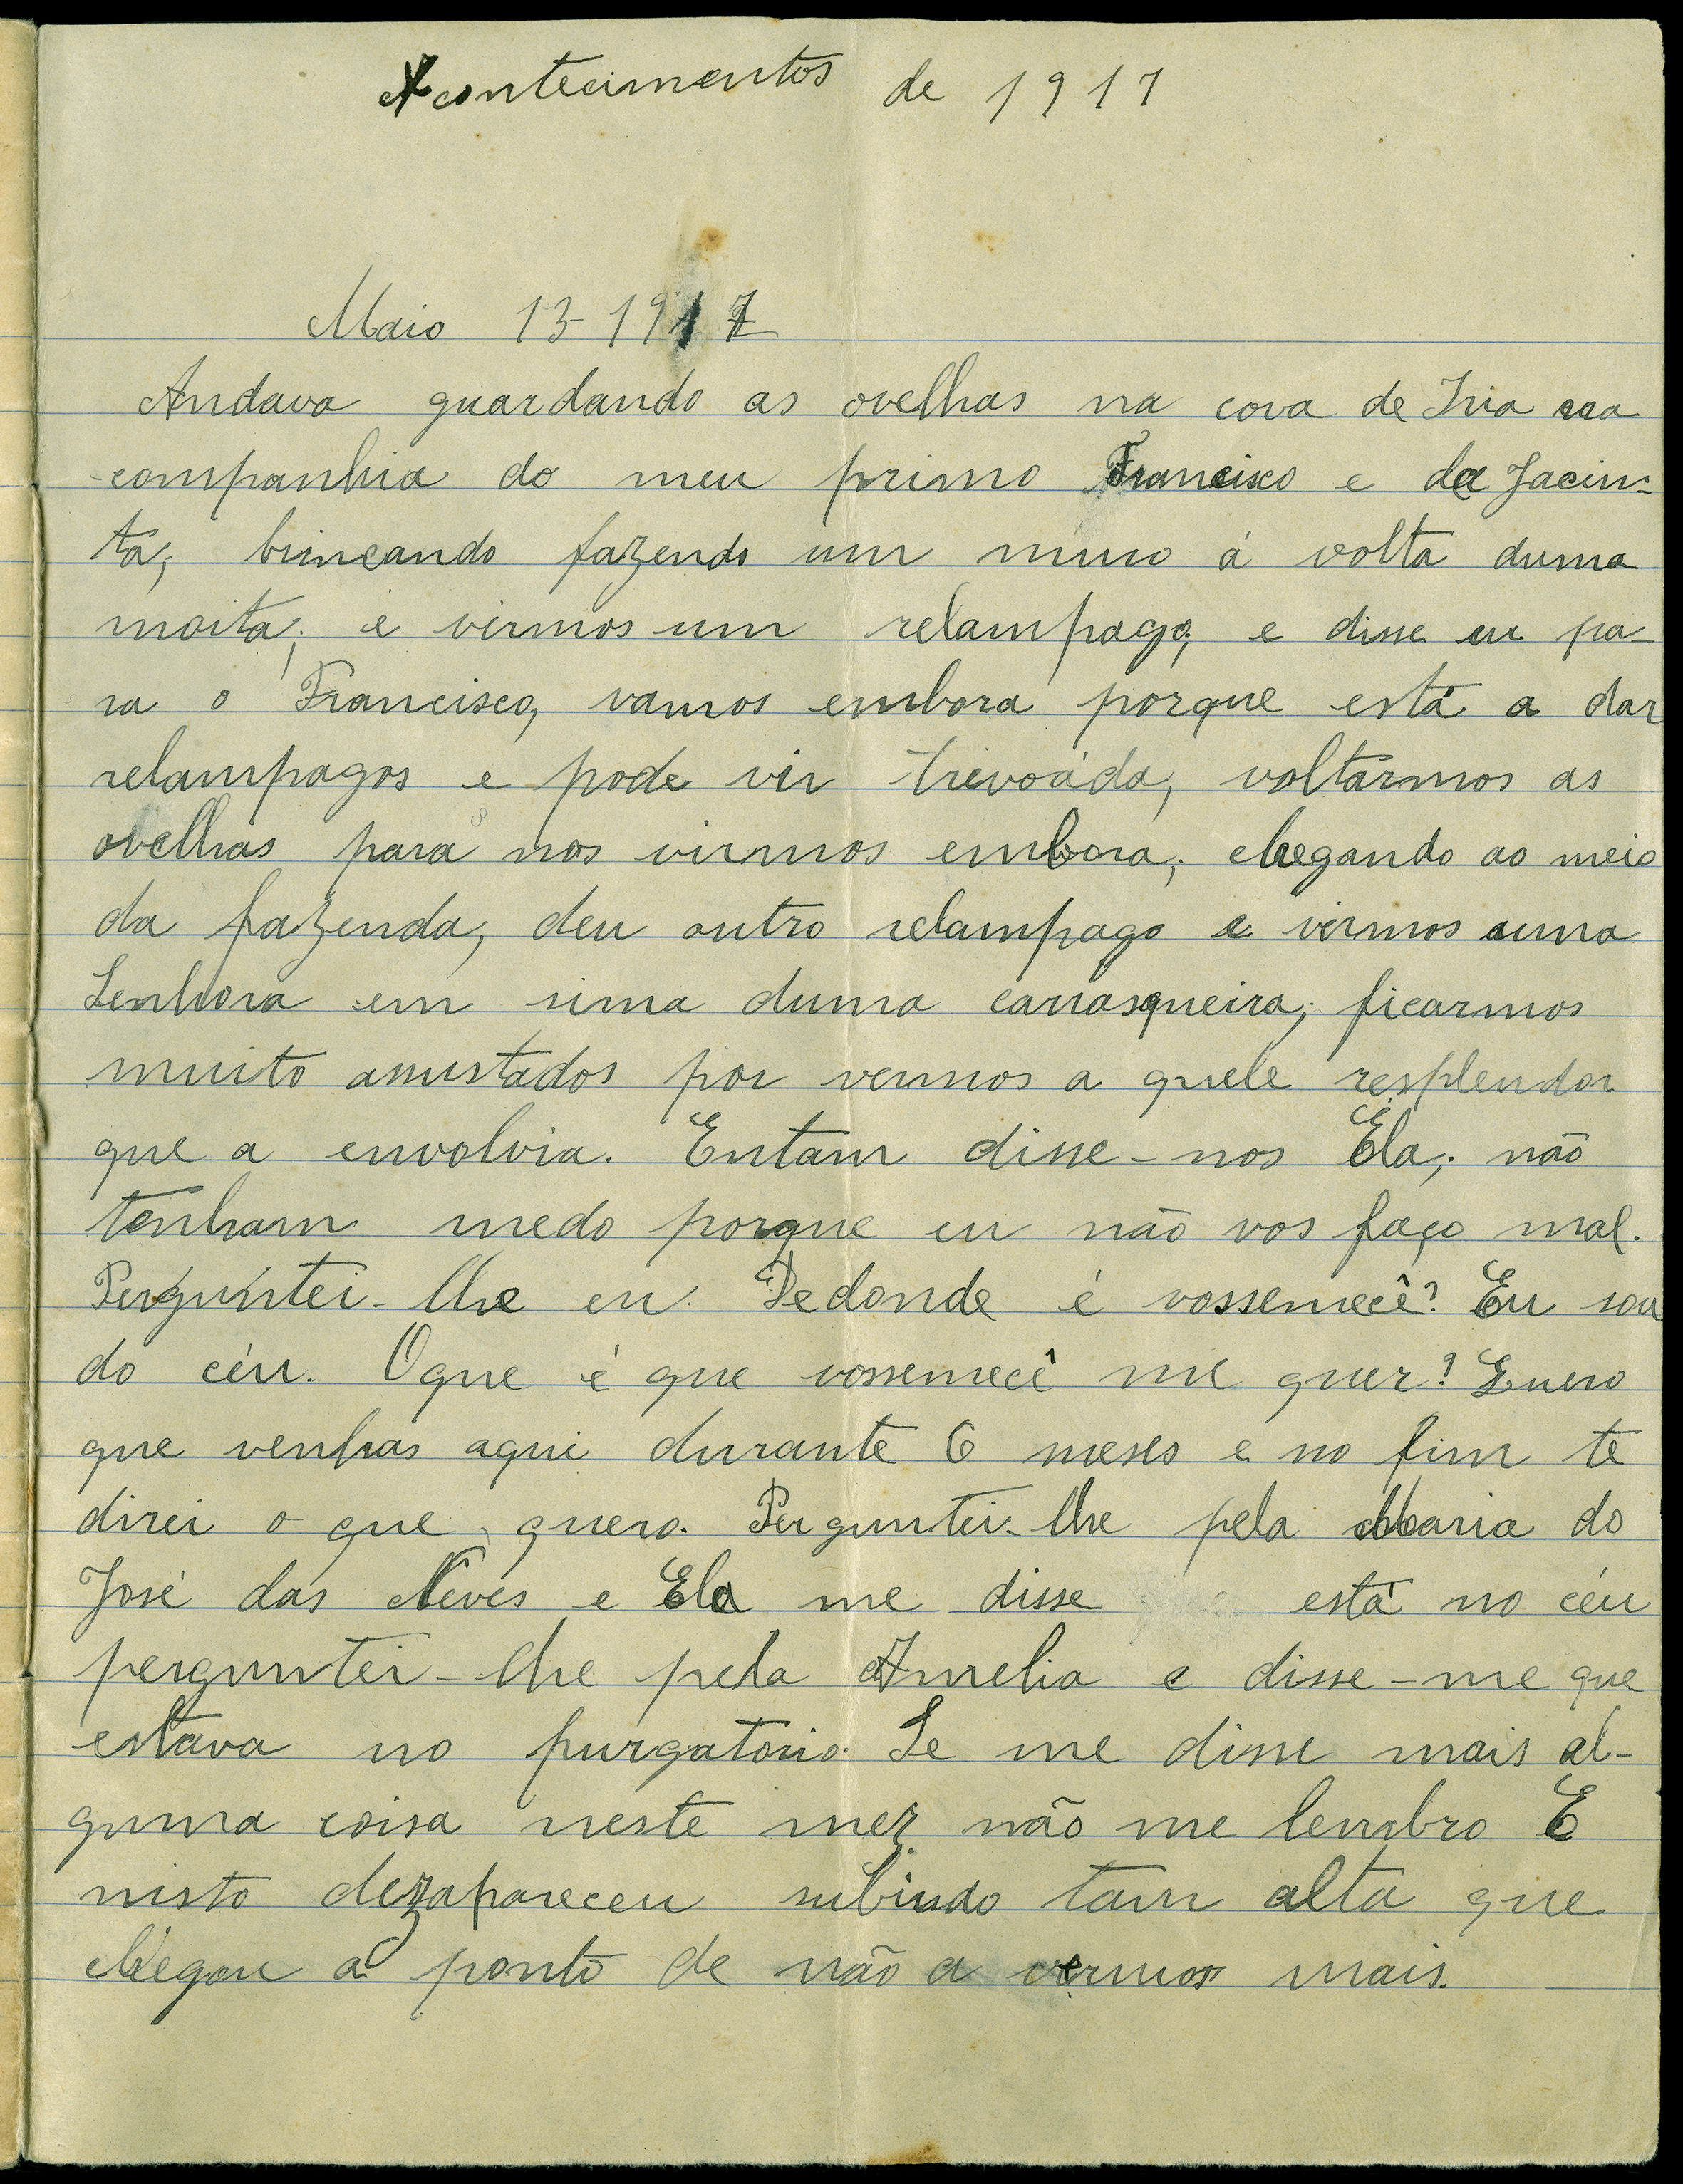 Acontecimentos de 1917
Maio 13-1917
Andava guardando as ovelhas na cova de Iria
companhia do meu primo Francisco e da Jacin-
ta, brincando fazendo um muro á volta duma
moita; e virmos um relampago, e disse eu pa-
ra o Francisco, vamos embora porque está a dar
relampagos e pode vir trevoáda, voltarmos as
ovelhas para nos virmos embora, chegando ao meio
da fazenda, deu outro relampago e virmos uma
Senhora em sima duma carrasqueira, ficarmos
muito assustados por vermos a quele resplendor
que a envolvia. Entam disse-nos Ela; não
tenham medo porque eu não vos faço mal.
Perguntei-lhe eu. Dedonde é vossemecê? Eu sou
do céu. Oque é que vossemecê me quer? Quero
que venhas aqui durante 6 meses e no fim te
direi o que quero. Perguntei-lhe pela Maria do
José das Neves e Ela me disse está no céu
perguntei-lhe pela Amelia e disse-me que
estava no purgatorio. Se me disse mais al-
guma coisa neste mez não me lembro E
nisto dezapareceu subindo tam alta que
chegou a ponto de não a vermos mais.